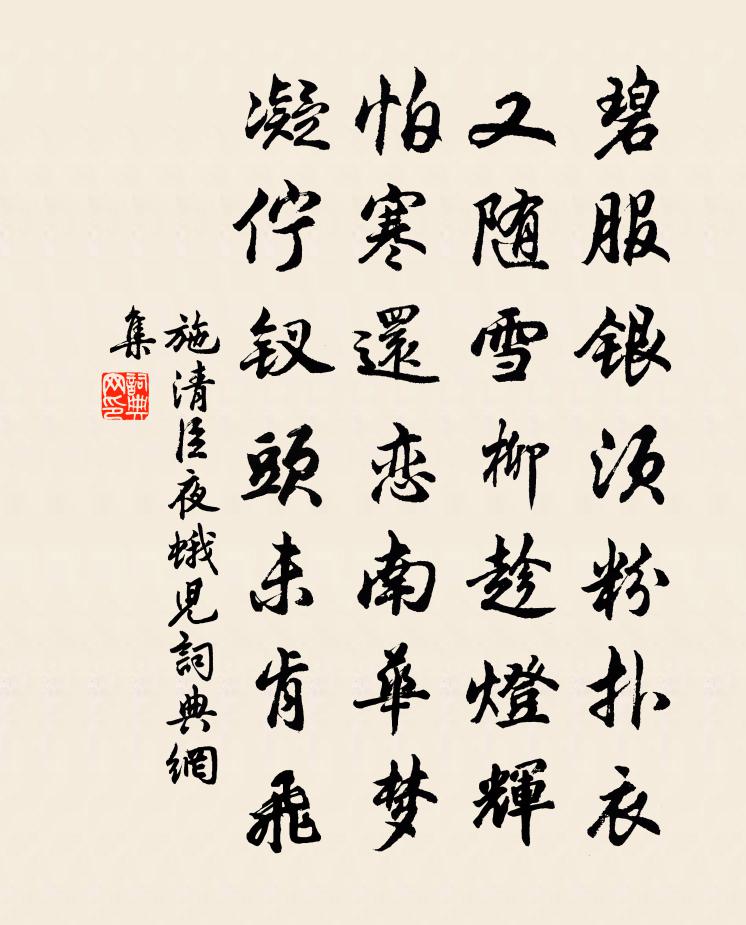 碧服银须粉扑衣
又随雪柳趁燈輝
怕寒還恋南華梦
凝佇钗頭未肯飛
施清臣夜蛾児詞典網
集
詞典網印